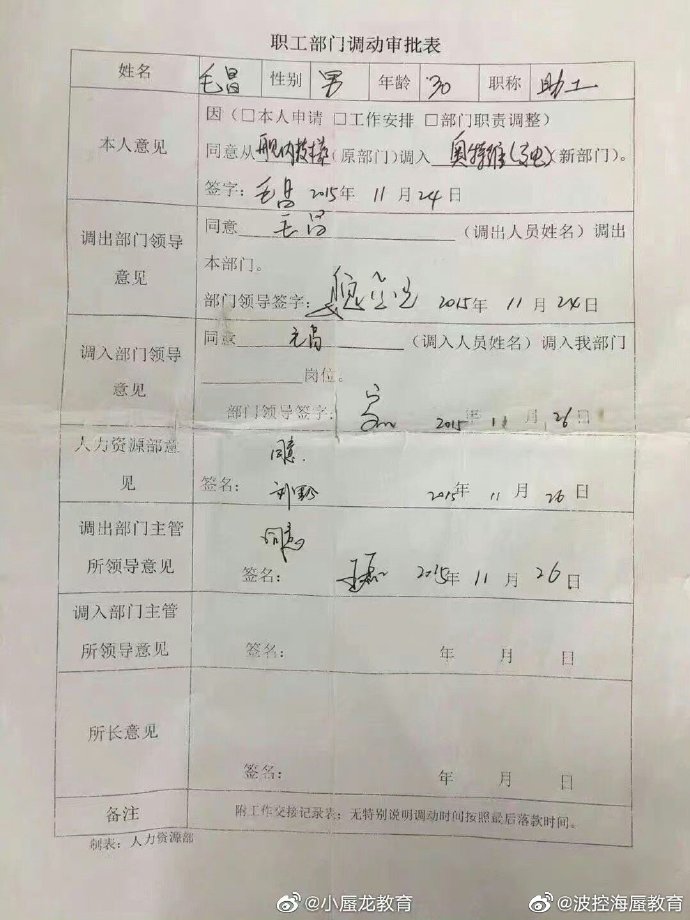 职工部门调动审批表
姓名 毛昌 性别 男 年龄 30 职称 助工
本人意见
因（□本人申请 □工作安排 □部门职责调整）
同意从 （原部门）调入 奥特维 （新部门）。
签字：毛昌 2015年 11月24日
调出部门领导意见
同意 毛昌 （调出人员姓名）调出
本部门。
部门领导签字： 2015年 11月24日
调入部门领导意见
同意 毛昌 （调入人员姓名）调入我部门
岗位。
部门领导签字： 2015年 11月26日
人力资源部意见
同意.
签名： 2015年 11月26日
调出部门主管所领导意见
同意
签名： 2015年 11月26日
调入部门主管所领导意见
签名： 年 月 日
所长意见
签名： 年 月 日
备注 附工作交接记录表；无特别说明调动时间按照最后落款时间。
制表：人力资源部
@小屋龙教育
@波控海屋教育